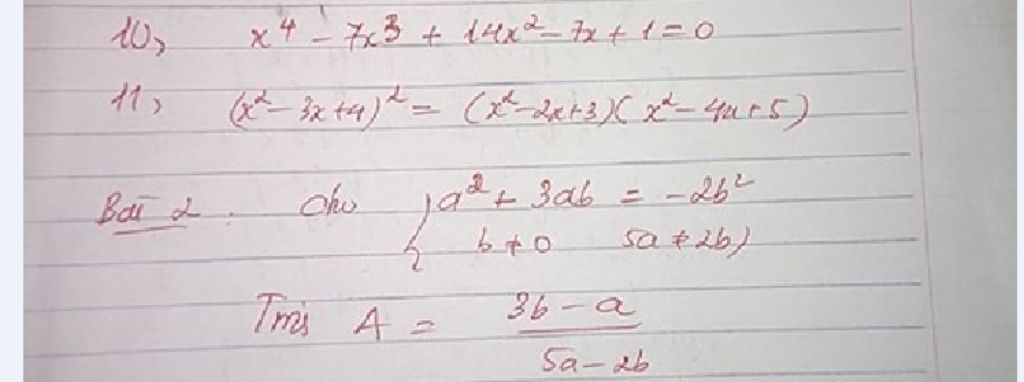 10, x⁴ - 7x³ + 14x² - 7x + 1 = 0
11, (x² - 3x + 4)² = (x² - 2x + 3)(x² - 4x + 5)
Bài 2. Cho { a² + 3ab = -2b²
b ≠ 0 5a ≠ 2b)
A = (3b - a)/(5a - 2b)